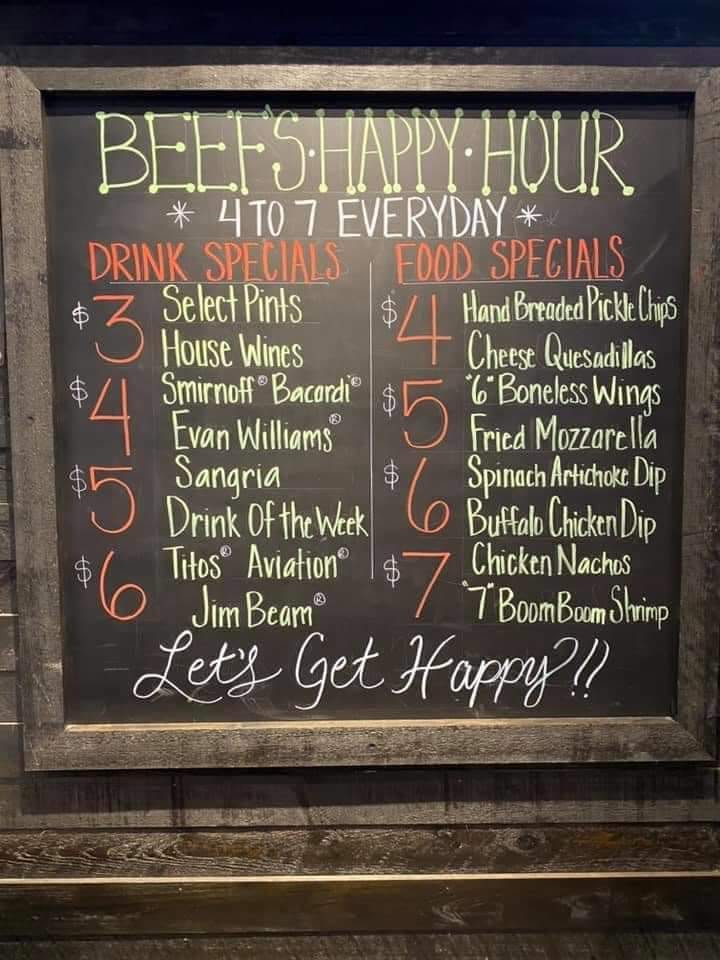 BEEF'S·HAPPY·HOUR
* 4 TO 7 EVERYDAY *
DRINK SPECIALS
$3 Select Pints
House Wines
$4 Smirnoff® Bacardi®
Evan Williams®
$5 Sangria
Drink Of the Week
$6 Titos® Aviation®
Jim Beam®
FOOD SPECIALS
$4 Hand Breaded Pickle Chips
Cheese Quesadillas
$5 "6" Boneless Wings
Fried Mozzarella
$6 Spinach Artichoke Dip
Buffalo Chicken Dip
$7 Chicken Nachos
"7" Boom Boom Shrimp
Let's Get Happy?!!